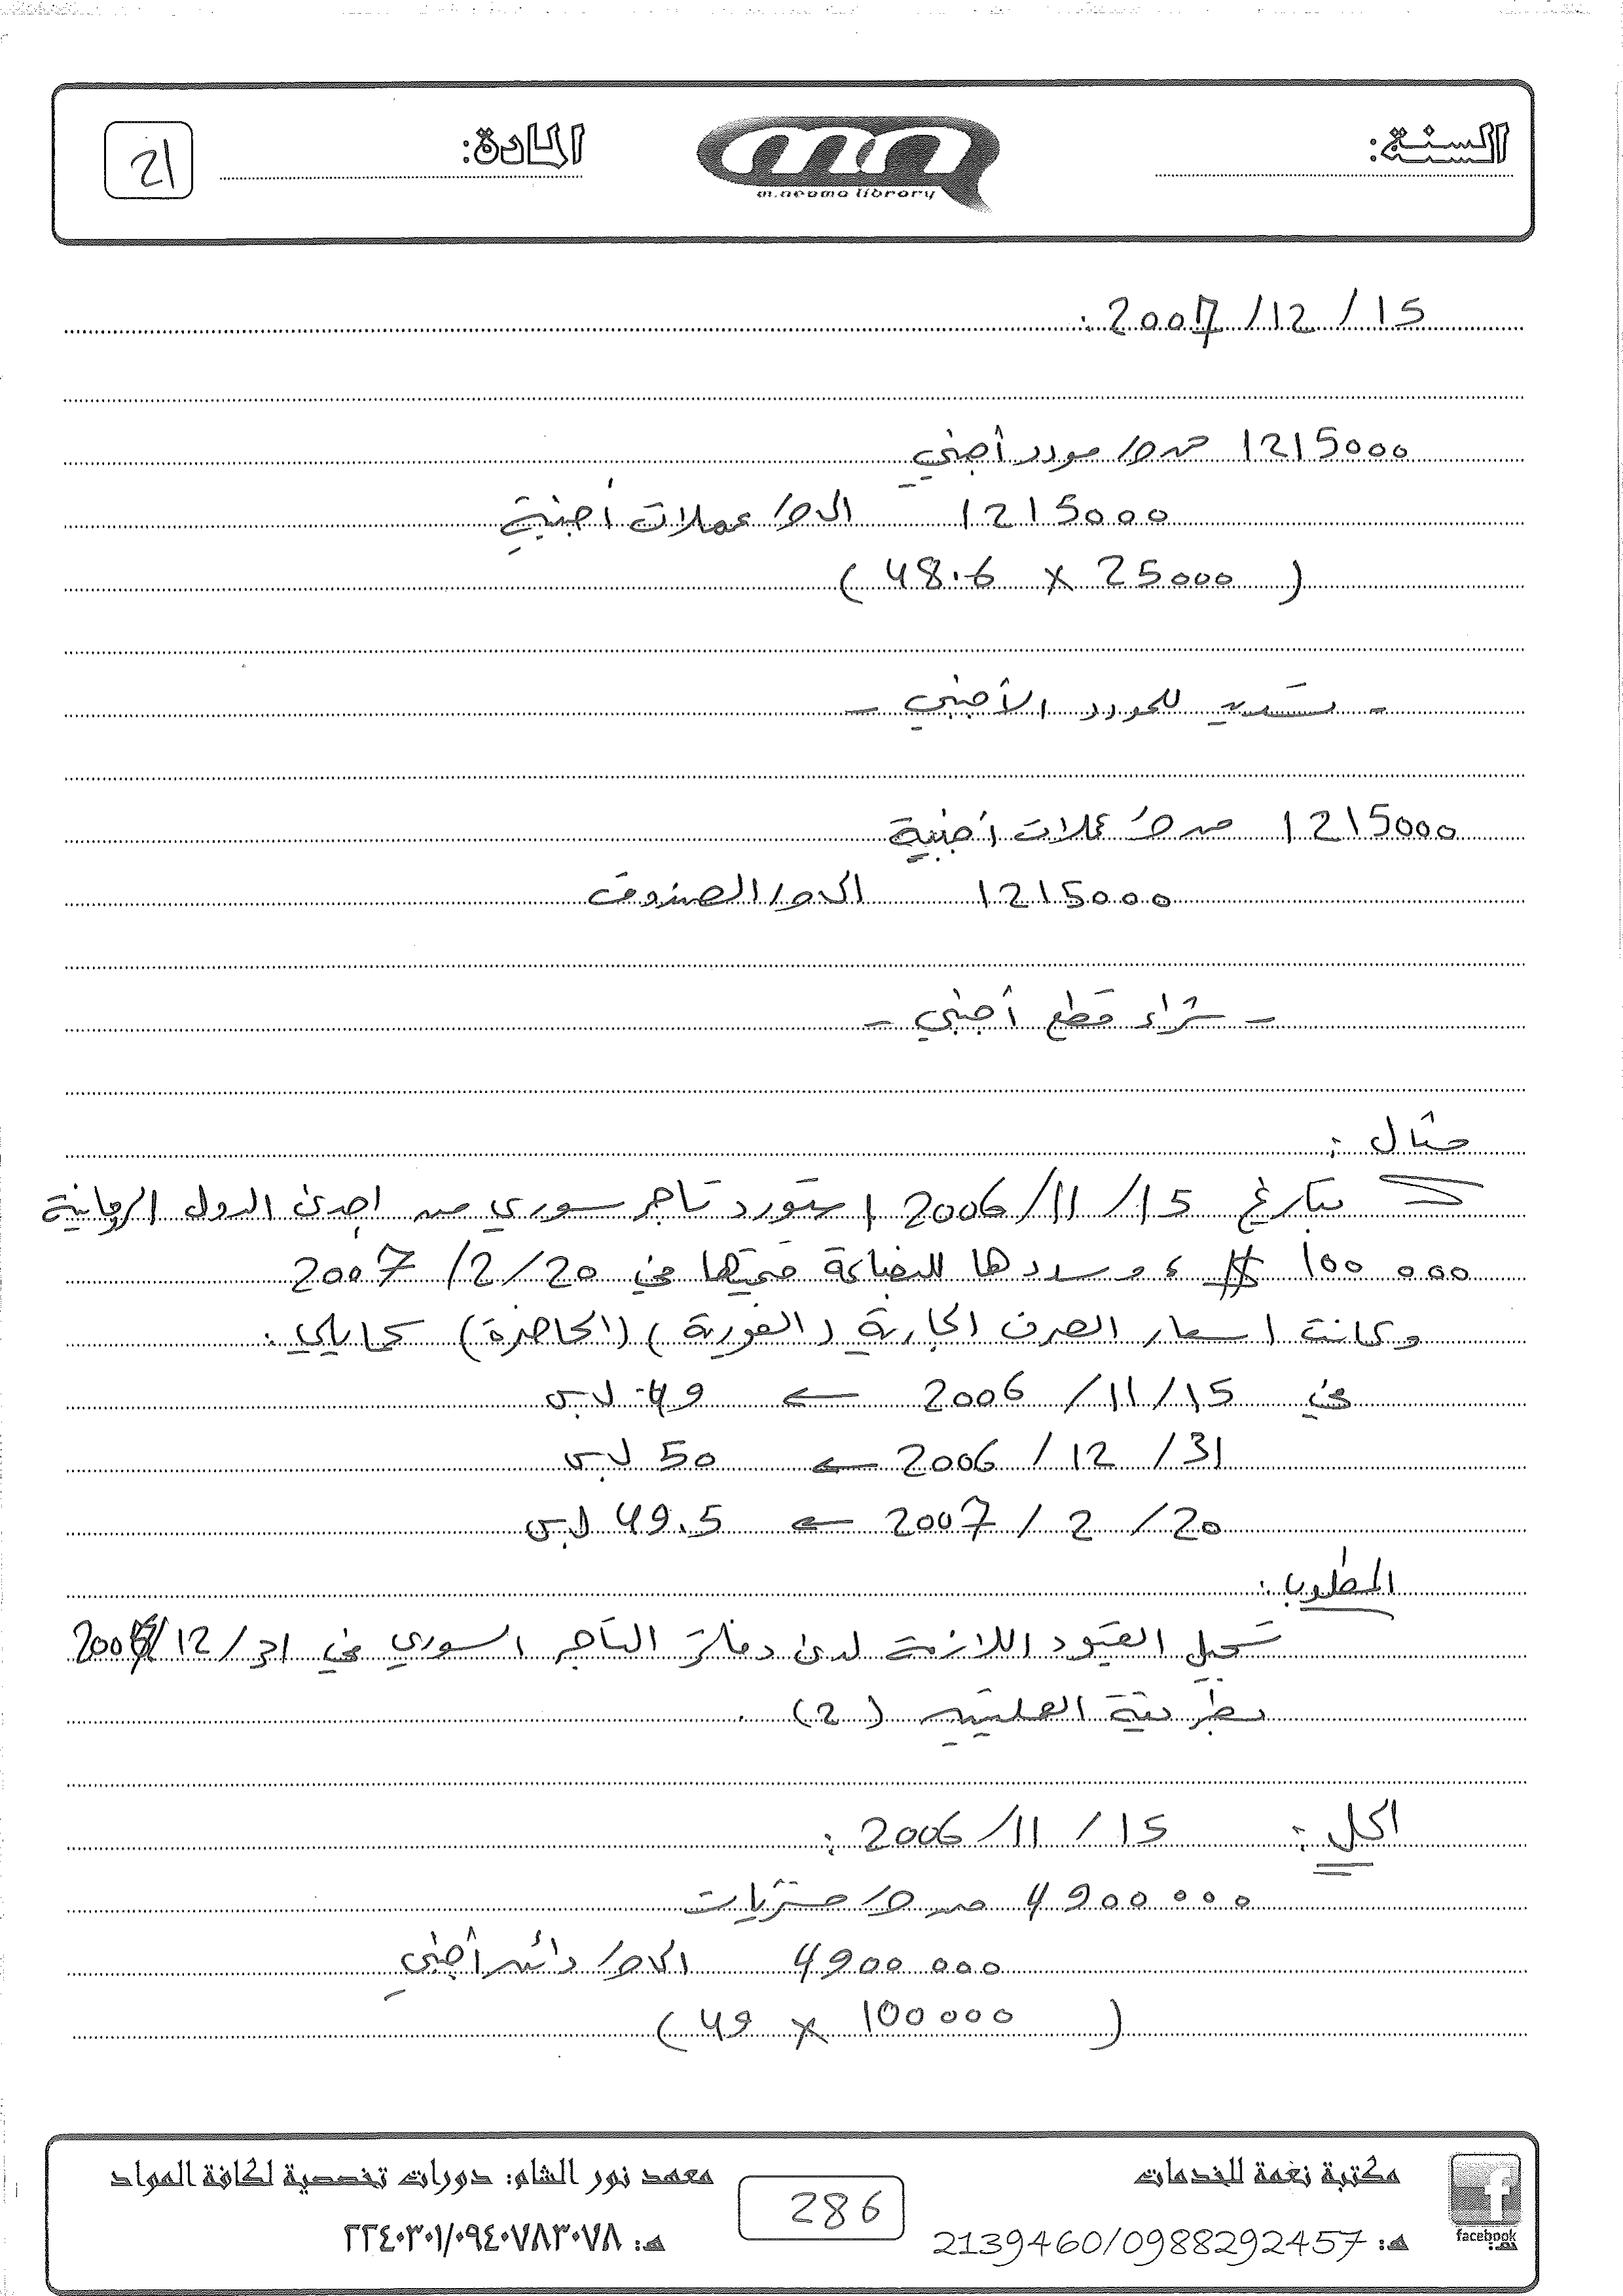 السنة:
المادة:
21
m.neama library
15 / 12 / 2007 :
1215000 من ح/ مورد أجنبي
1215000 الى ح/ عملات أجنبية
( 25000 × 48.6 )
- تسديد للمورد الأجنبي -
1215000 من ح/ عملات أجنبية
1215000 الى ح/ الصندوق
- شراء قطع أجنبي -
مثال :
بتاريخ 15 / 11 / 2006 استورد تاجر سوري من إحدى الدول الرومانية
100 000 $ ، وسددها للبضاعة قيمتها في 20 / 2 / 2007
وكانت اسعار الصرف الجارية ( الفورية ) ( الحاضرة ) كمايلي :
في 15 / 11 / 2006 ← 49 ل.س
31 / 12 / 2006 ← 50 ل.س
20 / 2 / 2007 ← 49.5 ل.س
المطلوب :
تسجيل القيود اللازمة لدى دفاتر التاجر السوري في 31 / 12 /
بطريقة العمليتين (2) .
الحل : 15 / 11 / 2006 :
4900 000 من ح/ مشتريات
4900 000 الى ح/ دائن أجنبي
( 100 000 × 49 )
مكتبة نعمة للخدمات
هـ: 2139460/0988292457
facebook
286
معهد نور الشام: دورات تخصصية لكافة المواد
هـ: ٢٢٤٠٣٠١/٠٩٤٠٧٨٣٠٧٨